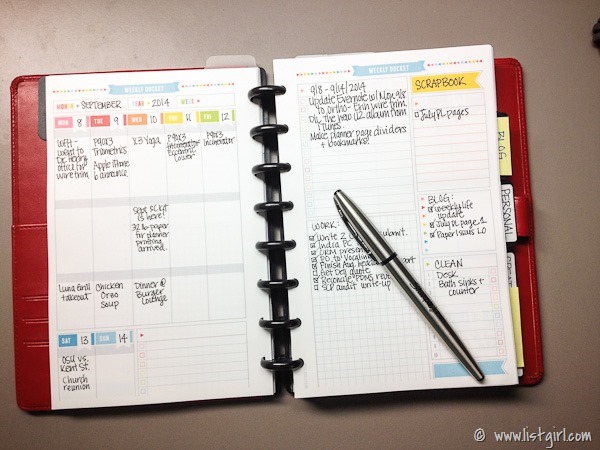 WEEKLY DOCKET
MONTH • SEPTEMBER YEAR • 2014 WEEK •
MON 8 TUE 9 WED 10 THU 11 FRI 12
WFH -
went to
Dr. Heiny
office for
wire trim.
P90X3
Triometrics
Apple iPhone
6 announce
X3 Yoga
P90X3
Incinerator
Eccentric
Lower
P90X3
Incinerator
Sept SC kit
is here!
32 lb paper
for planner
printing
arrived.
Luna Grill
takeout
Chicken
Orzo
Soup
Dinner @
Burger
Lounge
SAT 13 SUN 14
OSU vs.
Kent St.
Church
reunion
WEEKLY DOCKET
9/8 - 9/14/2014
Update Evernote w/ Mon 9/8
to Ortho - Erin wire trim.
D/L the new U2 album from
iTunes.
Make planner page dividers
+ bookmarks!
SCRAPBOOK
July PL pages
WORK
Write 2 submit.
India PC
CRM present
PO to Vocalin
Finish Aug. port
Get Dell quote
Reconcile
SCP audit write-up
BLOG:
Weekly life
update
July PL page 2
Paper Issues LO
CLEAN
Desk
Bath sinks +
counter
BLOG
PERSONAL
© www.listgirl.com